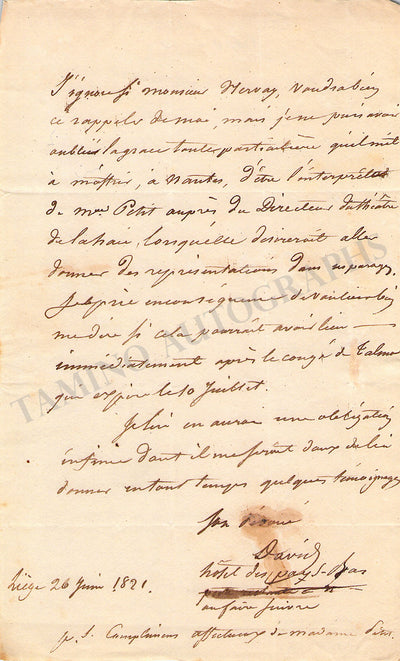 J'ignore si monsieur Nervay, voudra bien
ce rappeler de moi, mais je ne puis avoir
oublié la grace toute particulière qu'il mit
à m'offrir, à Nantes, d'être l'interprète
de mme Petit auprès du Directeur du théatre
de la haie, lorsqu'elle desireroit aller
donner des représentations dans
Je le prie en conséquence de vouloir bien
me dire si cela pourrait avoir lieu
immédiatement après le congé de Talma
que expire le 10 Juillet.
Je lui en aurai une obligation
infinie dont il me seroit doux de lui
donner en tout temps quelques témoignages
Son dévoué
David
hôtel des pays-Bas
ou faire suivre
Liège 26 Juin 1821.
p. S. Complimens affectueux de madame
TAMINO AUTOGRAPHS